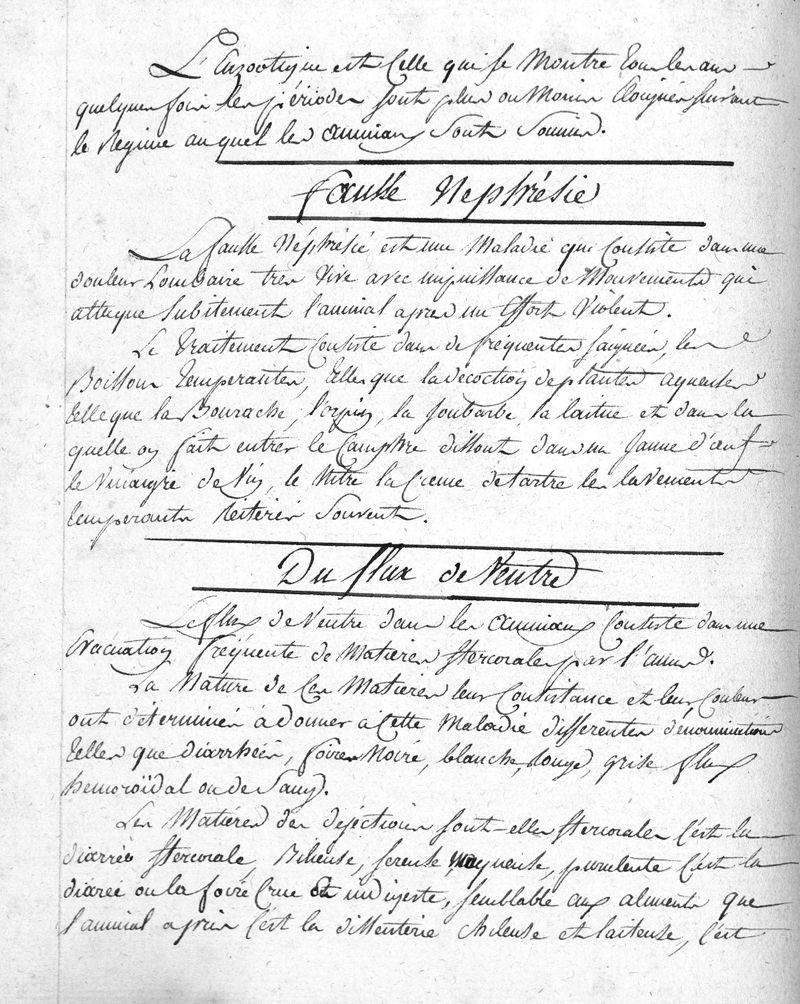 L'Enzootique est Celle qui se Montre tous les ans
quelques fois les périodes sont plus ou Moins Eloignés suivant
le Regime au quel les animaux sont soumis.
fausse Nephrésie
La fausse Néphrésie est une Maladie qui Consiste dans une
douleur Lombaire tres Vive avec impuissance de Mouvements qui
attaque subitement l'animal apres un Effort Violent.
Le Traitement Consiste dans de frequentes saignées, les
Boissons temperantes, telles que la décoction de plantes aqueuses
telle que la Bourache, l'orpin, la Joubarbe, la laitue et dans la
quelle on fait entrer le Camphre dissout dans un Jaune d'œuf
le Vinaigre de Vin, le Nitre la Creme de tartre les lavements
temperants reiterés souvent.
Du flux de Ventre
Le flux de Ventre dans les animaux Consiste dans une
Evacuation fréquente de Matieres stercorales par l'anus.
La Nature de Ces Matieres leur Consistance et leur Couleur
ont déterminés à donner à Cette Maladie differentes dénominations
telles que diarrheés, foires Noire, blanche, rouge, grise flux
hemoroïdal ou de sang.
Les Matieres des déjections sont-elles stercorales C'est la
diarrée stercorale, Bilieuse, sereuse, muqueuse, purulente C'est la
diarée ou la foire Crue et indigeste, semblable aux aliments que
l'animal a pris C'est la dissenterie chileuse et laiteuse, C'est